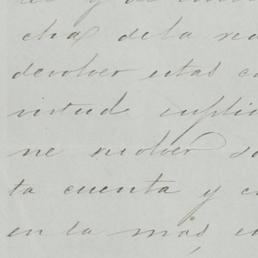 cha de la
devolver estas
virtud suplic
ne resolver
ta cuenta y
en la más,